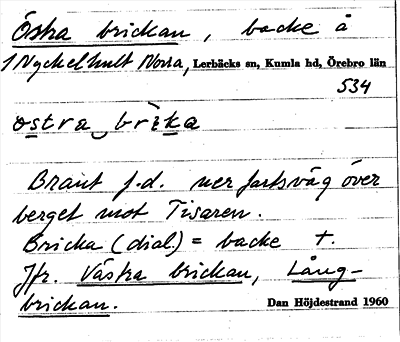 Östra brickan, backe å
1 Nyckelhult Norra, Lerbäcks sn, Kumla hd, Örebro län
534
östra brìka
Brant f.d. nerfartsväg över
berget mot Tisaren.
Bricka (dial.) = backe †.
Jfr. Västra brickan, Lång-
brickan.
Dan Höjdestrand 1960